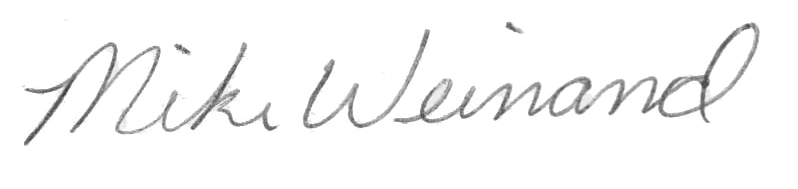 Mike Weinand